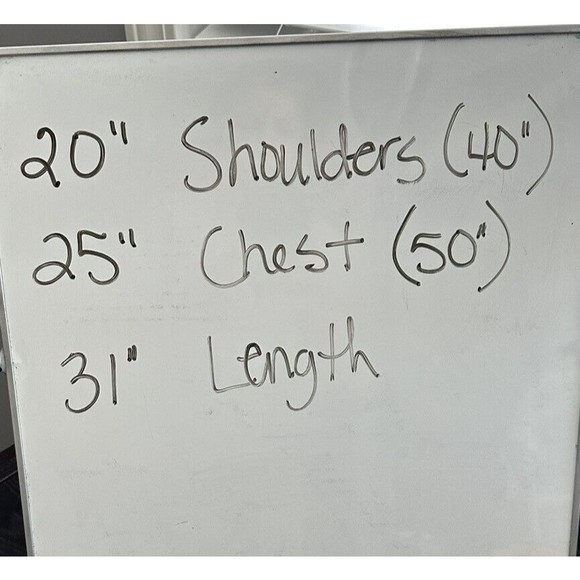 20" Shoulders (40")
25" Chest (50")
31" Length